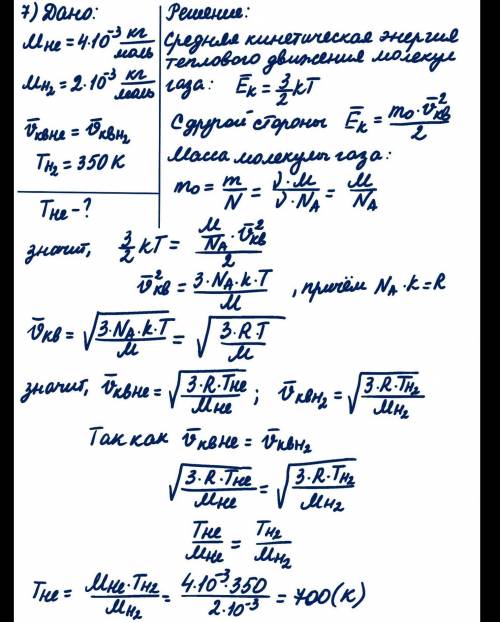 7) Дано:
Mне = 4·10⁻³ кг/моль
Mн₂ = 2·10⁻³ кг/моль
v̄квне = v̄квн₂
Tн₂ = 350 К
Tне - ?
Решение:
Средняя кинетическая энергия
теплового движения молекул
газа: Ēк = 3/2 kT
С другой стороны Ēк = m₀·v̄²кв/2
Масса молекулы газа:
m₀ = m/N = ν·M/ν·Nᴀ = M/Nᴀ
значит, 3/2 kT = M/Nᴀ·v̄²кв/2
v̄²кв = 3·Nᴀ·k·T/M , причём Nᴀ·k=R
v̄кв = √(3·Nᴀ·k·T/M) = √(3·R·T/M)
значит, v̄квне = √(3·R·Tне/Mне) ; v̄квн₂ = √(3·R·Tн₂/Mн₂)
Так как v̄квне = v̄квн₂
√(3·R·Tне/Mне) = √(3·R·Tн₂/Mн₂)
Tне/Mне = Tн₂/Mн₂
Tне = Mне·Tн₂/Mн₂ = 4·10⁻³·350/2·10⁻³ = 700(К)